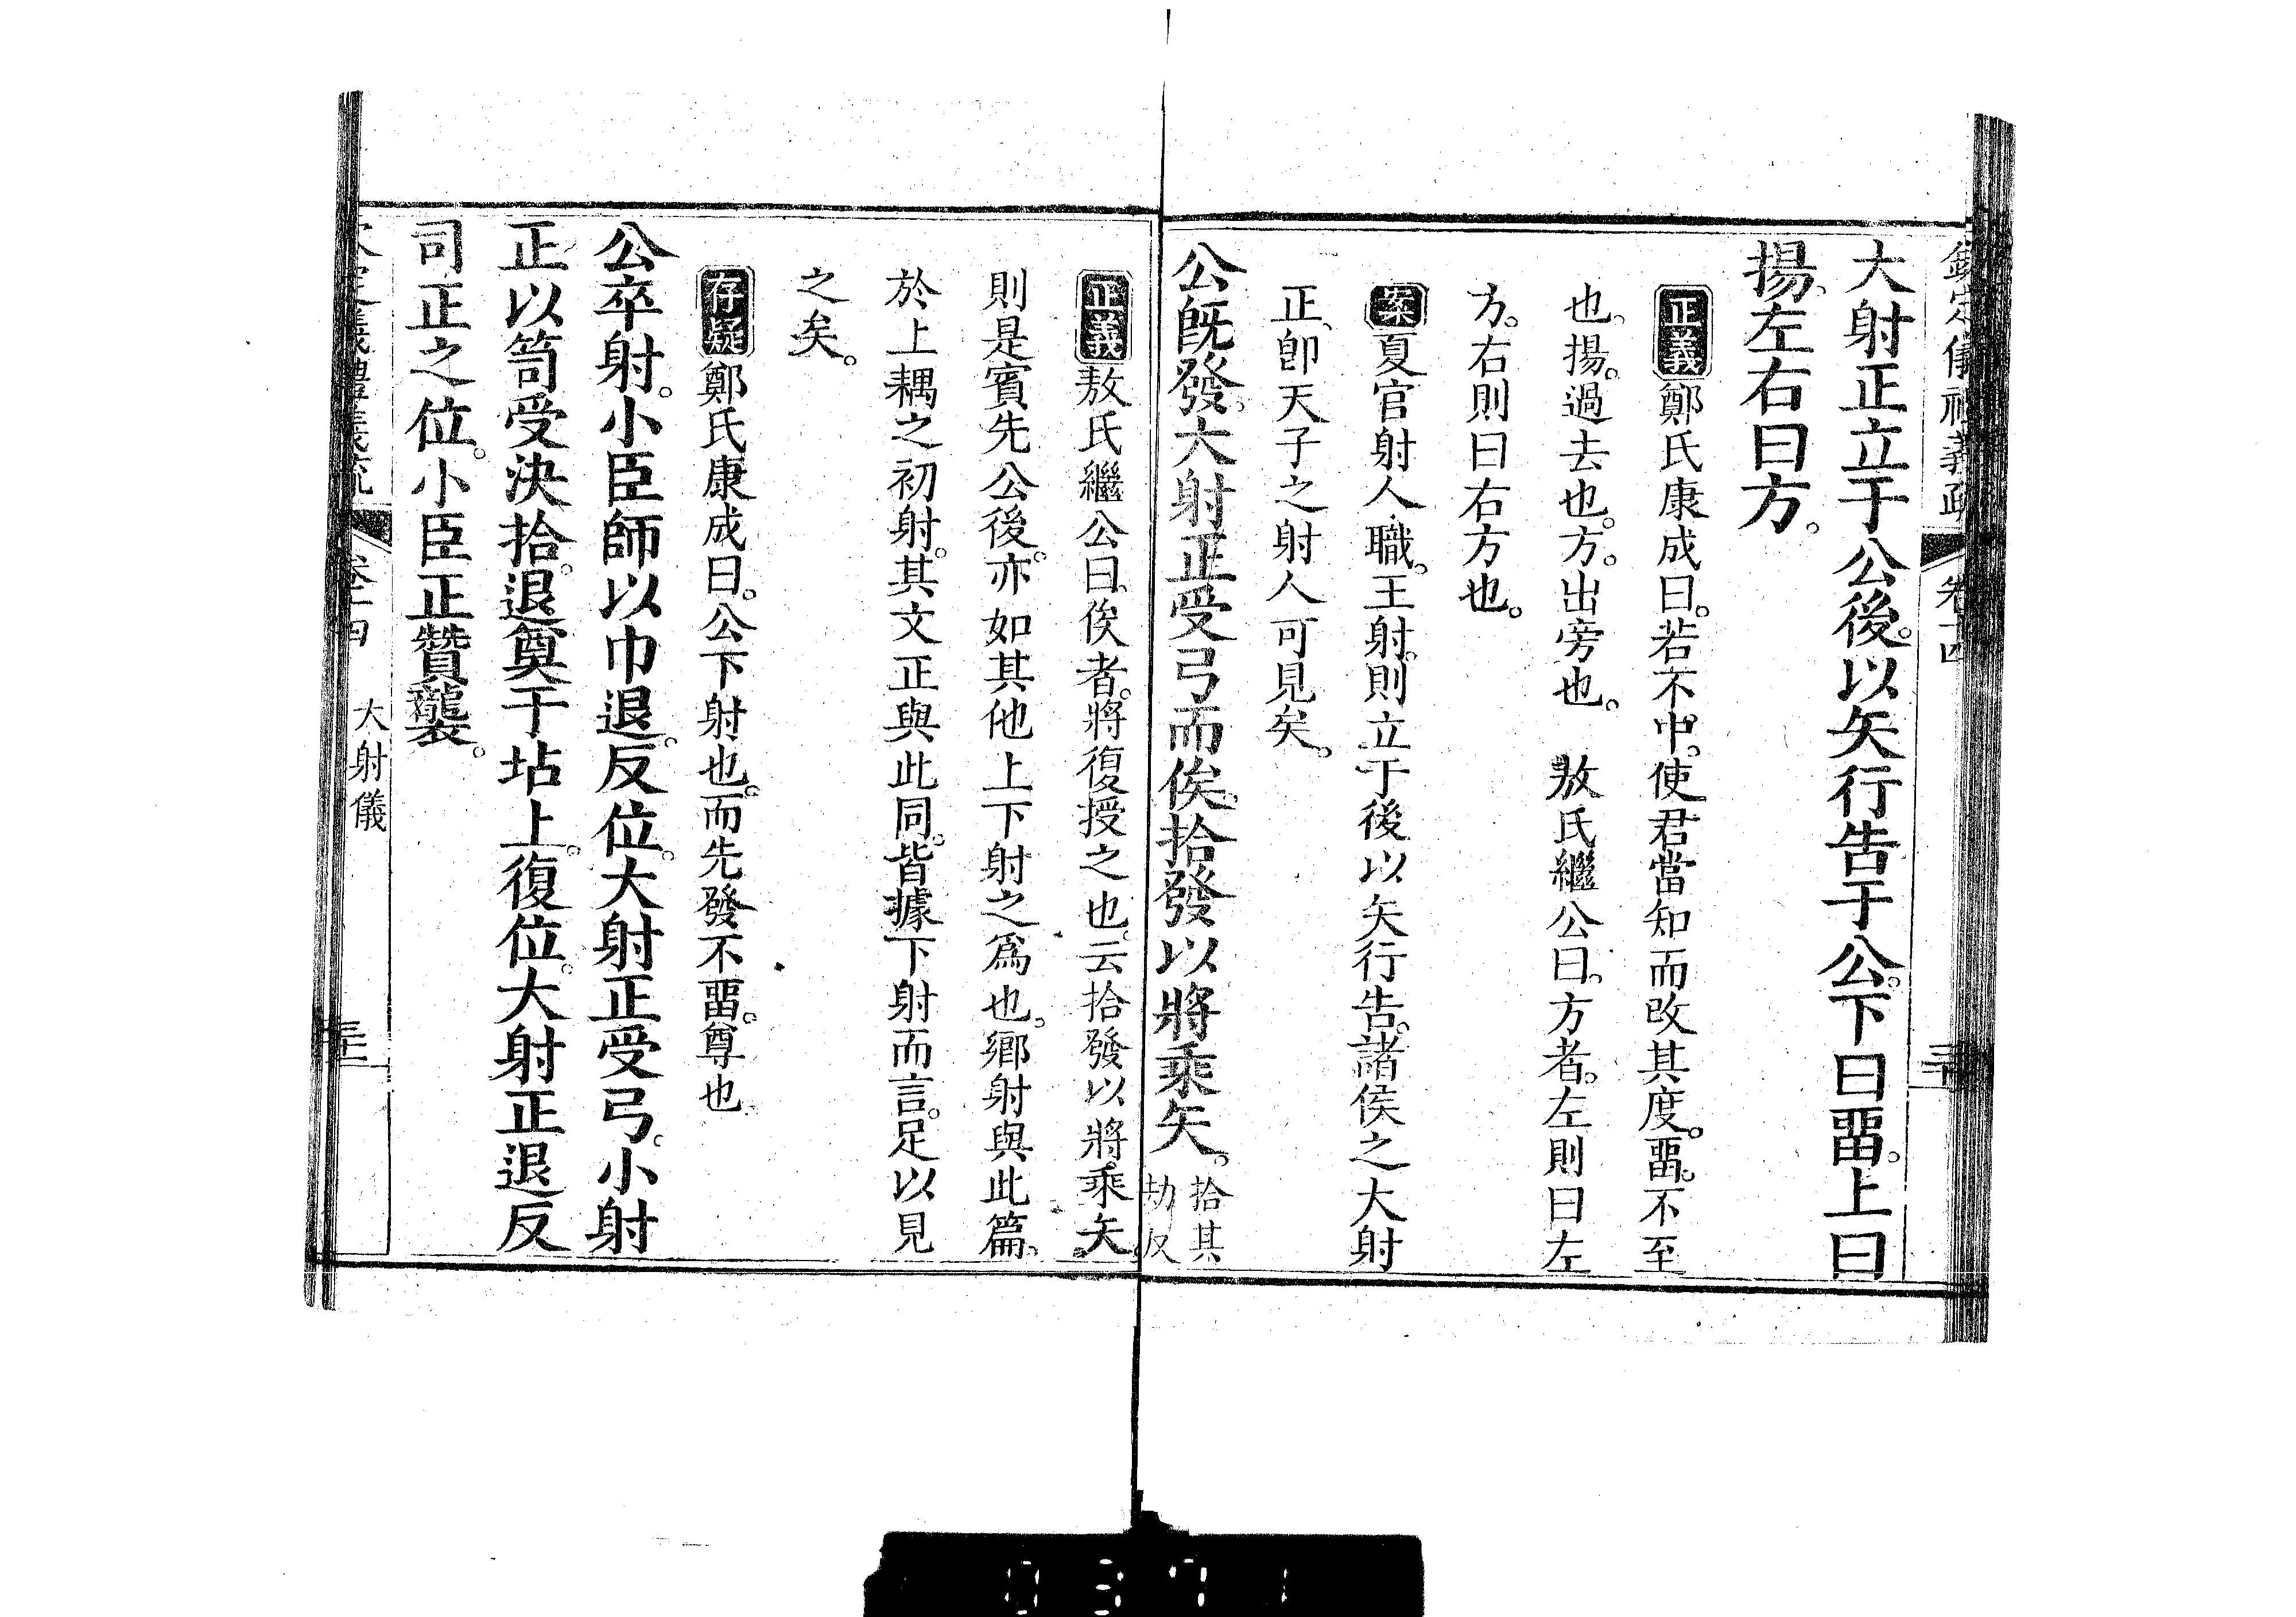 大射正立于公後。以矢行告于公。下曰畱。上曰
揚。左右曰方。
正義鄭氏康成曰。若不中。使君當知而改其度。畱。不至
也。揚。過去也。方。出旁也。　敖氏繼公曰。方者。左則曰左
方。右則曰右方也。
案夏官射人職。王射。則立于後以矢行告。諸侯之大射
正、卽天子之射人可見矣。
公旣發。大射正受弓而俟。拾發以將乘矢。拾其劫反
正義敖氏繼公曰。俟者。將復授之也。云拾發以將乘矢。
則是賓先公後。亦如其他上下射之爲也。鄉射與此篇。
於上耦之初射。其文正與此同。皆據下射而言。足以見
之矣。
存疑鄭氏康成曰。公下射也。而先發不畱。尊也
公卒射。小臣師以巾退。反位。大射正受弓。小射
正以笥受決拾。退奠于坫上。復位。大射正退反
司正之位。小臣正贊襲。
大射儀
0371